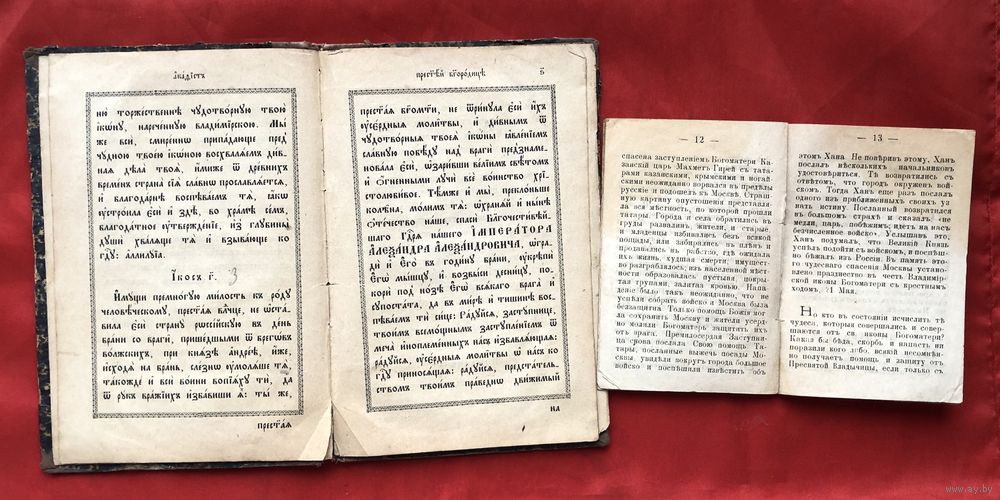 а҆ка́ѳїстъ
ню̀ торже́ственнѣ чꙋдотво́рнꙋю твою̀
і҆кѡ́нꙋ, нарече́ннꙋю владимі́рскою. Мы́
же всѝ, смире́ннѡ припа́дающе пред̾
чꙋ́дною твое́ю і҆кѡ́ною восхвалѧ́емъ ди̑в-
наѧ дѣла̀ твоѧ̑, и҆́миже ѿ дре́внихъ
време́нъ страна̀ сїѧ̀ сла́внѡ прославлѧ́етсѧ,
и҆ благода́рнѣ воспѣва́емъ тѧ̀, ꙗ҆́кѡ
ᲂу҆стро́ила є҆сѝ и҆ здѣ̀, во хра́мѣ се́мъ,
благода́тное ᲂу҆твержде́нїе, и҆з̾ глꙋбины̀
дꙋшѝ хва́лѧще тѧ̀ и҆ взыва́юще ко
гдⷭ҇ꙋ: а҆ллилꙋ́їа.
І҆́косъ г҃. 3
И҆мꙋ́щи премно́гꙋю ми́лость къ ро́дꙋ
человѣ́ческомꙋ, прест҃а́ѧ вⷣчце, не ѡ҆ста́-
вила є҆сѝ странꙋ̀ рѡссі́йскꙋю въ де́нь
бра́ни со врагѝ, прише́дшыми ѿ брегѡ́въ
во́лжскихъ, при кнѧ́зѣ а҆ндре́ѣ, и҆́же,
и҆сходѧ̀ на бра́нь, сле́знѡ ᲂу҆молѧ́ше тѧ̀,
та́кожде и҆ всѝ во́ини вопїѧ́хꙋ тѝ, да
ѿ рꙋ́къ вра́жїихъ и҆зба́виши ѧ҆̀: ты́ же,
прест҃а́ѧ
прест҃ѣ́й бг҃оро́дицѣ
прест҃а́ѧ бг҃ома́ти, не ѿри́нꙋла є҆сѝ и҆́хъ
ᲂу҆се́рдныѧ моли́твы, и҆ ди́внымъ ѿ
чꙋдотво́рныѧ твоеѧ̀ і҆кѡ́ны ꙗ҆вле́нїемъ
сла́внꙋю побѣ́дꙋ над̾ врагѝ предзнаме-
нова́ла є҆сѝ, ѡ҆зари́вши ве́лїимъ свѣ́томъ
и҆ ѻ҆́гненными лꙋчѝ всѐ во́инство хрⷭ҇-
толюби́вое. Тѣ́мже и҆ мы̀, преклѡ́ньше
кѡлѣ́на, мо́лимъ тѧ̀: ѡ҆хранѧ́й и҆ ны́нѣ
ѻ҆те́чество на́ше, спасѝ Бл҃гочести́вѣй-
шаго Гдⷭ҇рѧ на́шего ИМПЕРАТОРА
АЛЕѮАНДРА АЛЕѮАНДРОВИЧА, ѡ҆гра-
дѝ и҆ Є҆го̀ въ годи́нꙋ бра́ни, ᲂу҆крѣпѝ
Є҆гѡ̀ мы́шцꙋ, и҆ возвы́си десни́цꙋ, по-
корѝ под̾ но́зѣ Є҆гѡ̀ всѧ́каго врага̀ и҆
сꙋпоста́та, да въ ми́рѣ и҆ тишинѣ̀ вос-
пѣва́емъ тѝ си́це: Ра́дꙋйсѧ, застꙋ́пнице,
твои́мъ всемо́щнымъ застꙋпле́нїемъ ѿ
меча̀ и҆ноплеме́нныхъ на́съ и҆збавлѧ́ющаѧ:
ра́дꙋйсѧ, ᲂу҆се́рдныѧ моли́твы ѡ҆ на́съ ко
гдⷭ҇ꙋ приносѧ́щаѧ: ра́дꙋйсѧ, предста́тель-
ствомъ твои́мъ пра́веднѡ дви́жимый
на
— 12 —
спасена заступленіемъ Богоматери Ка-
занскій царь Махметъ Гирей съ тата-
рами казанскими, крымскими и ногай-
скими неожиданно ворвался въ предѣлы
русскіе и подошелъ къ Москвѣ. Страш-
ную картину опустошенія представля-
ла вся мѣстность, по которой прошли
татары. Города и села обратились въ
груды развалинъ, жители, и старые.
и младенцы избивались безъ всякой
пощады, или забирались въ плѣнъ и
продавались въ рабство, гдѣ ожидала
ихъ жизнь, худшая смерти; имущест-
во разграблялось; изъ населенной мѣст-
ности образовалась пустыня, покры-
тая трупами, залитая кровью. Напа-
деніе было такъ неожиданно, что не
успѣли собрать войско и Москва была
беззащитна. Только помощь Божія мог-
ла сохранить Москву и жители усерд-
но молили Богоматерь защитить ихъ
отъ врага. Премилосердая Заступни-
ца снова послала Свою помощь. Та-
тары, посланные выжечь посады Мо-
сквы, увидѣли вокругъ города большое
войско и поспѣшили извѣстить объ
— 13 —
этомъ Хана. Не повѣривъ этому, Ханъ
послалъ нѣсколькихъ начальниковъ
удостовѣриться. Тѣ возвратились съ
отвѣтомъ, что городъ окруженъ вой-
скомъ. Тогда Ханъ еще разъ послалъ
одного изъ приближенныхъ своихъ уз-
нать истину. Посланный возвратился
въ большомъ страхѣ и сказалъ: «не
медли, царь, побѣжимъ; идетъ на насъ
безчисленное войско». Услышавъ это,
Ханъ подумалъ, что Великій Князь
успѣлъ подойти съ войскомъ, и поспѣш-
но бѣжалъ изъ Россіи. Въ память это-
го чудеснаго спасенія Москвы установ-
лено празднество въ честь Владимір-
ской иконы Богоматери съ крестнымъ
ходомъ, 21 Мая.
Но кто въ состояніи исчислить тѣ
чудеса, которыя совершались и совер-
шаются отъ св. иконы Богоматери?
Какая бы бѣда, скорбь и напасть ни
поразили кого либо, всякій несомнѣн-
но получаетъ помощь и защиту отъ
Пресвятой Владычицы, если только съ
www.ay.by